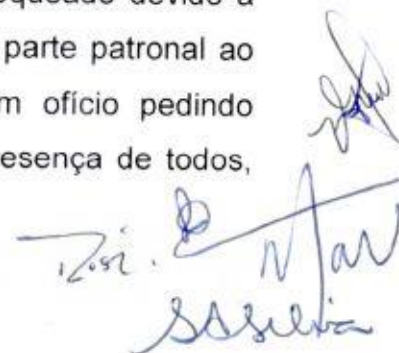 oqueado devido à
parte patronal ao
m ofício pedindo
esença de todos,
SSSilvia